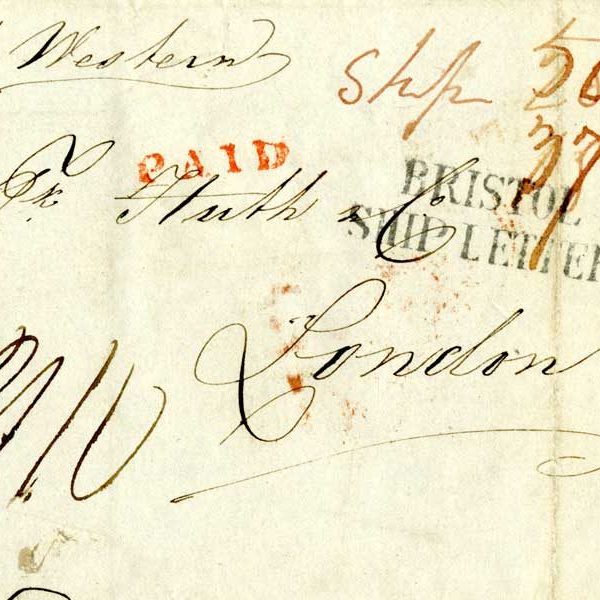 Western
Ship
PAID
BRISTOL
SHIP LETTER
Fk. Huth & C
London